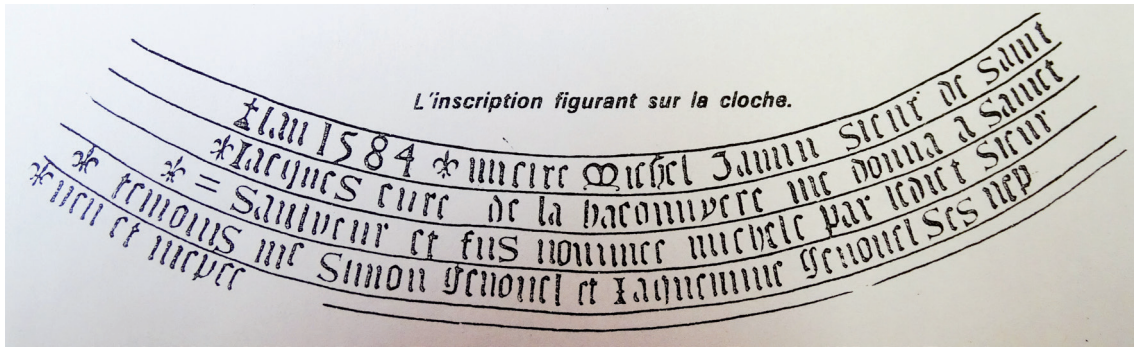 L'inscription figurant sur la cloche.
✝lan 1584 ⚜ missire Michel Jamin Sieur de Saint
⚜Iacques cure de la baconnyere me donna a Sainct
⚜ = Sauiveur et fus nommee michele par ledict Sieur
⚜ temoins me Simon genouel et Iaquemine genouel Ses nep
⚜ueu et niepce